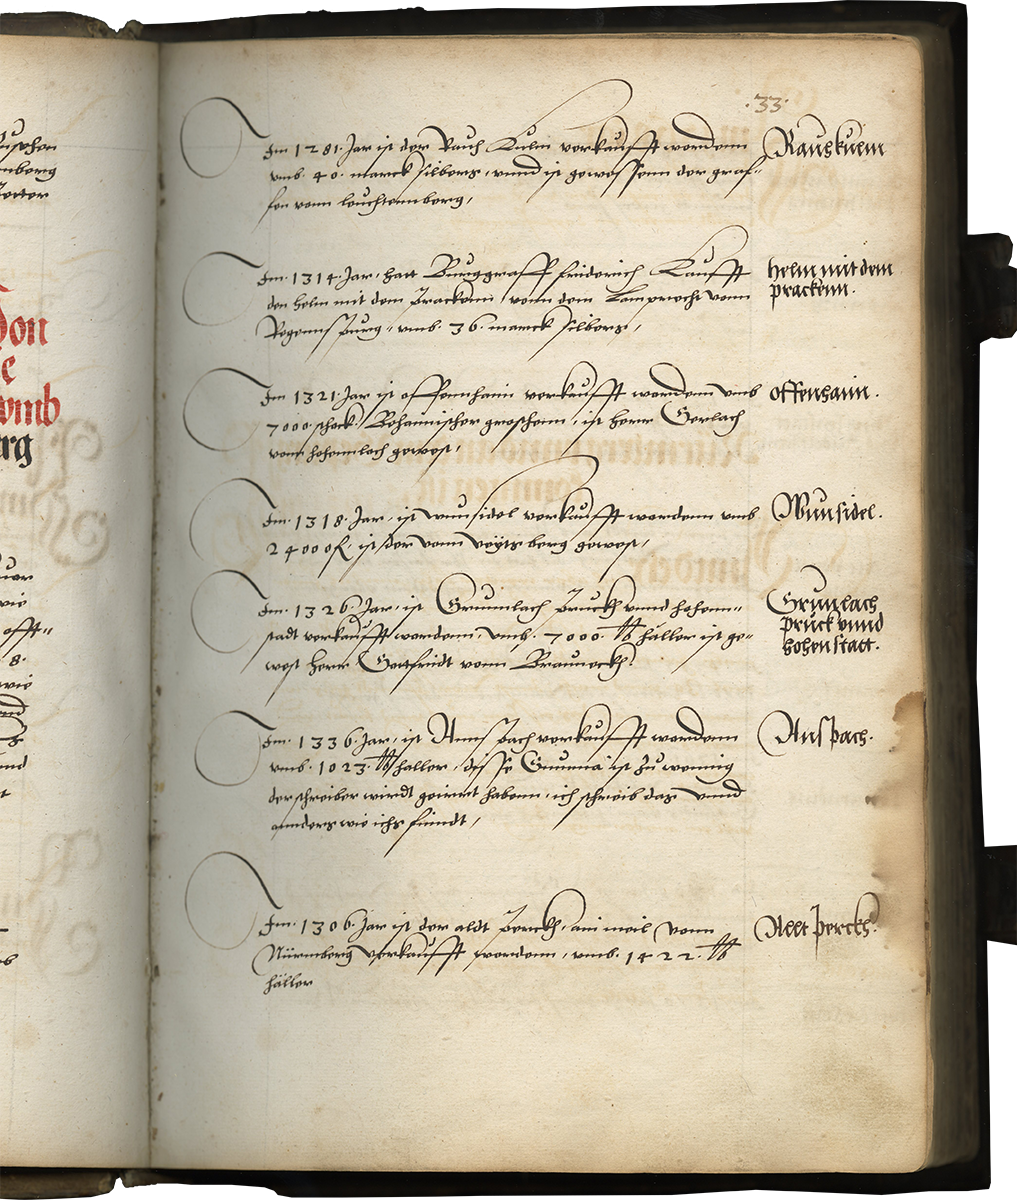 .33.
Im 1281 Jar ist der Rauch Kulm verkaufft wordenn
vmb. 40. marck silbers, vnnd ist gewessenn der graf-
fen vonn leuchtennberg,
Rauskulm
Im. 1314. Jar. hatt Burggraff friderich Kaufft
den helm mit dem prackenn, vonn dem Lamprecht vonn
Regennspurg, vmb. 36. marck silbers,
helm mit dem
prackenn.
Im 1321. Jar ist offennhaim verkaufft wordenn vmb
7000. schock. Bohamischer groschenn, ist herr Gerlach
vonn hohennloch gewest,
offenhaim.
Im. 1318. Jar. ist wunsidel verkaufft wordenn vmb
24000 fl. ist der vonn voÿtsberg gewest,
Wunsidel.
Im. 1326. Jar. ist Grunnlach Pruckh vnnd hohenn-
stadt verkaufft wordenn, vmb. 7000. lb häller ist ge-
west herr Gottfridt vonn Brauneckh.
Grunlach
prück vnnd
hohenstatt.
Im. 1336. Jar. ist Annspach verkaufft wordenn
vmb. 1023. lb haller, disse Summa ist zu wennig
der schreiber wirdt geirrt habenn, ich schreib das vnnd
annders wie ichs fündt,
Anspach.
Im. 1306. Jar ist der aldt perckh, ain meil vonn
Nürmberg verkaufft wordenn, vmb. 1422. lb
häller
Allt perckh.